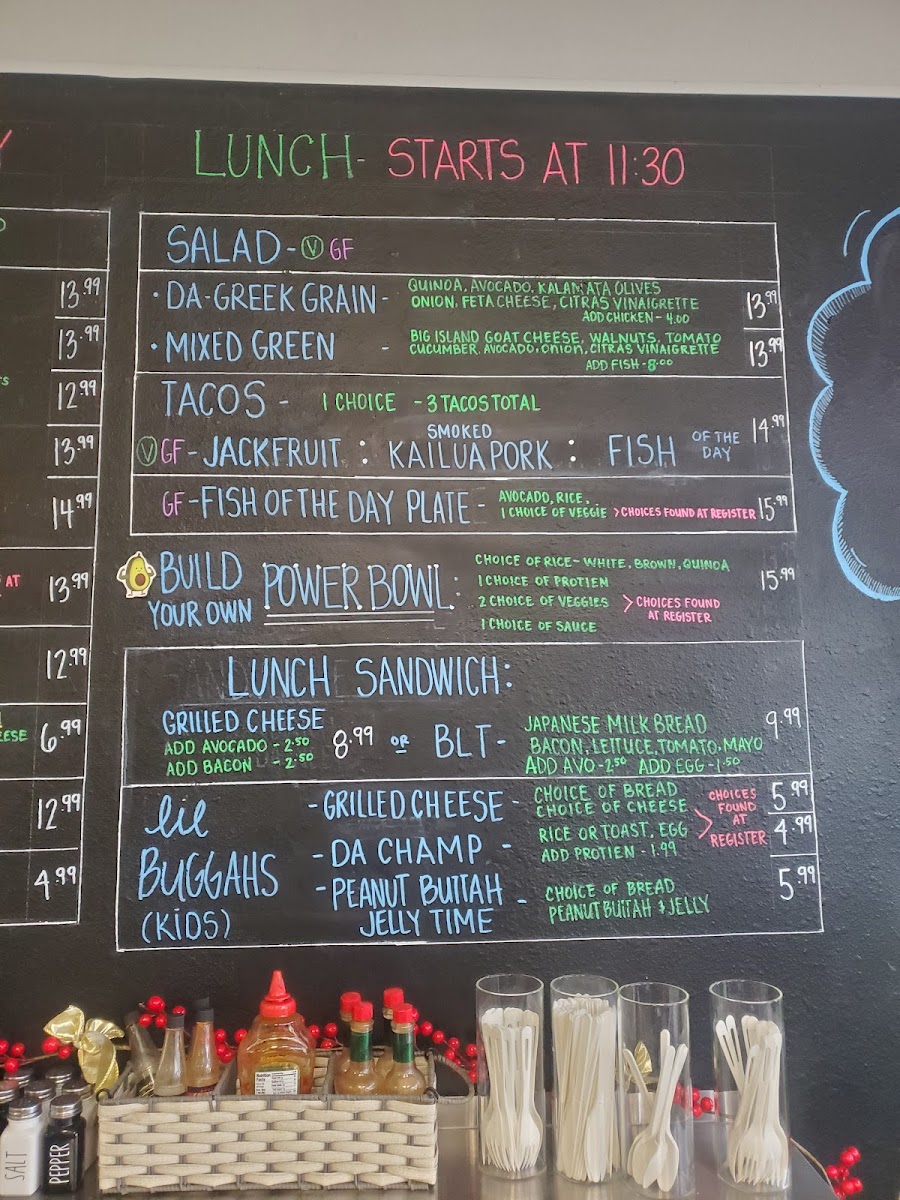 Y
LUNCH- STARTS AT 11:30
SALAD - V GF
• DA-GREEK GRAIN - QUINOA, AVOCADO, KALAMATA OLIVES
ONION, FETA CHEESE, CITRAS VINAIGRETTE
ADD CHICKEN - 4.00
13.99
• MIXED GREEN - BIG ISLAND GOAT CHEESE, WALNUTS, TOMATO
CUCUMBER, AVOCADO, ONION, CITRAS VINAIGRETTE
ADD FISH - 8.00
13.99
TACOS - 1 CHOICE - 3 TACOS TOTAL
V GF - JACKFRUIT : SMOKED KAILUA PORK : FISH OF THE DAY 14.99
GF - FISH OF THE DAY PLATE - AVOCADO, RICE,
1 CHOICE OF VEGGIE > CHOICES FOUND AT REGISTER 15.99
BUILD YOUR OWN POWER BOWL: 15.99
CHOICE OF RICE - WHITE, BROWN, QUINOA
1 CHOICE OF PROTIEN
2 CHOICE OF VEGGIES > CHOICES FOUND AT REGISTER
1 CHOICE OF SAUCE
LUNCH SANDWICH:
GRILLED CHEESE 8.99
ADD AVOCADO - 2.50
ADD BACON - 2.50
OR BLT - JAPANESE MILK BREAD 9.99
BACON, LETTUCE, TOMATO, MAYO
ADD AVO - 2.50 ADD EGG - 1.50
LIL
BUGGAHS
(KIDS)
- GRILLED CHEESE - CHOICE OF BREAD
CHOICE OF CHEESE
5.99
- DA CHAMP - RICE OR TOAST, EGG
ADD PROTIEN - 1.99
4.99
> CHOICES FOUND AT REGISTER
- PEANUT BUTTAH
JELLY TIME - CHOICE OF BREAD
PEANUT BUTTAH & JELLY
5.99
13.99
13.99
12.99
13.99
14.99
AT 13.99
12.99
EESE 6.99
12.99
4.99
SALT
PEPPER
Nutrition Facts